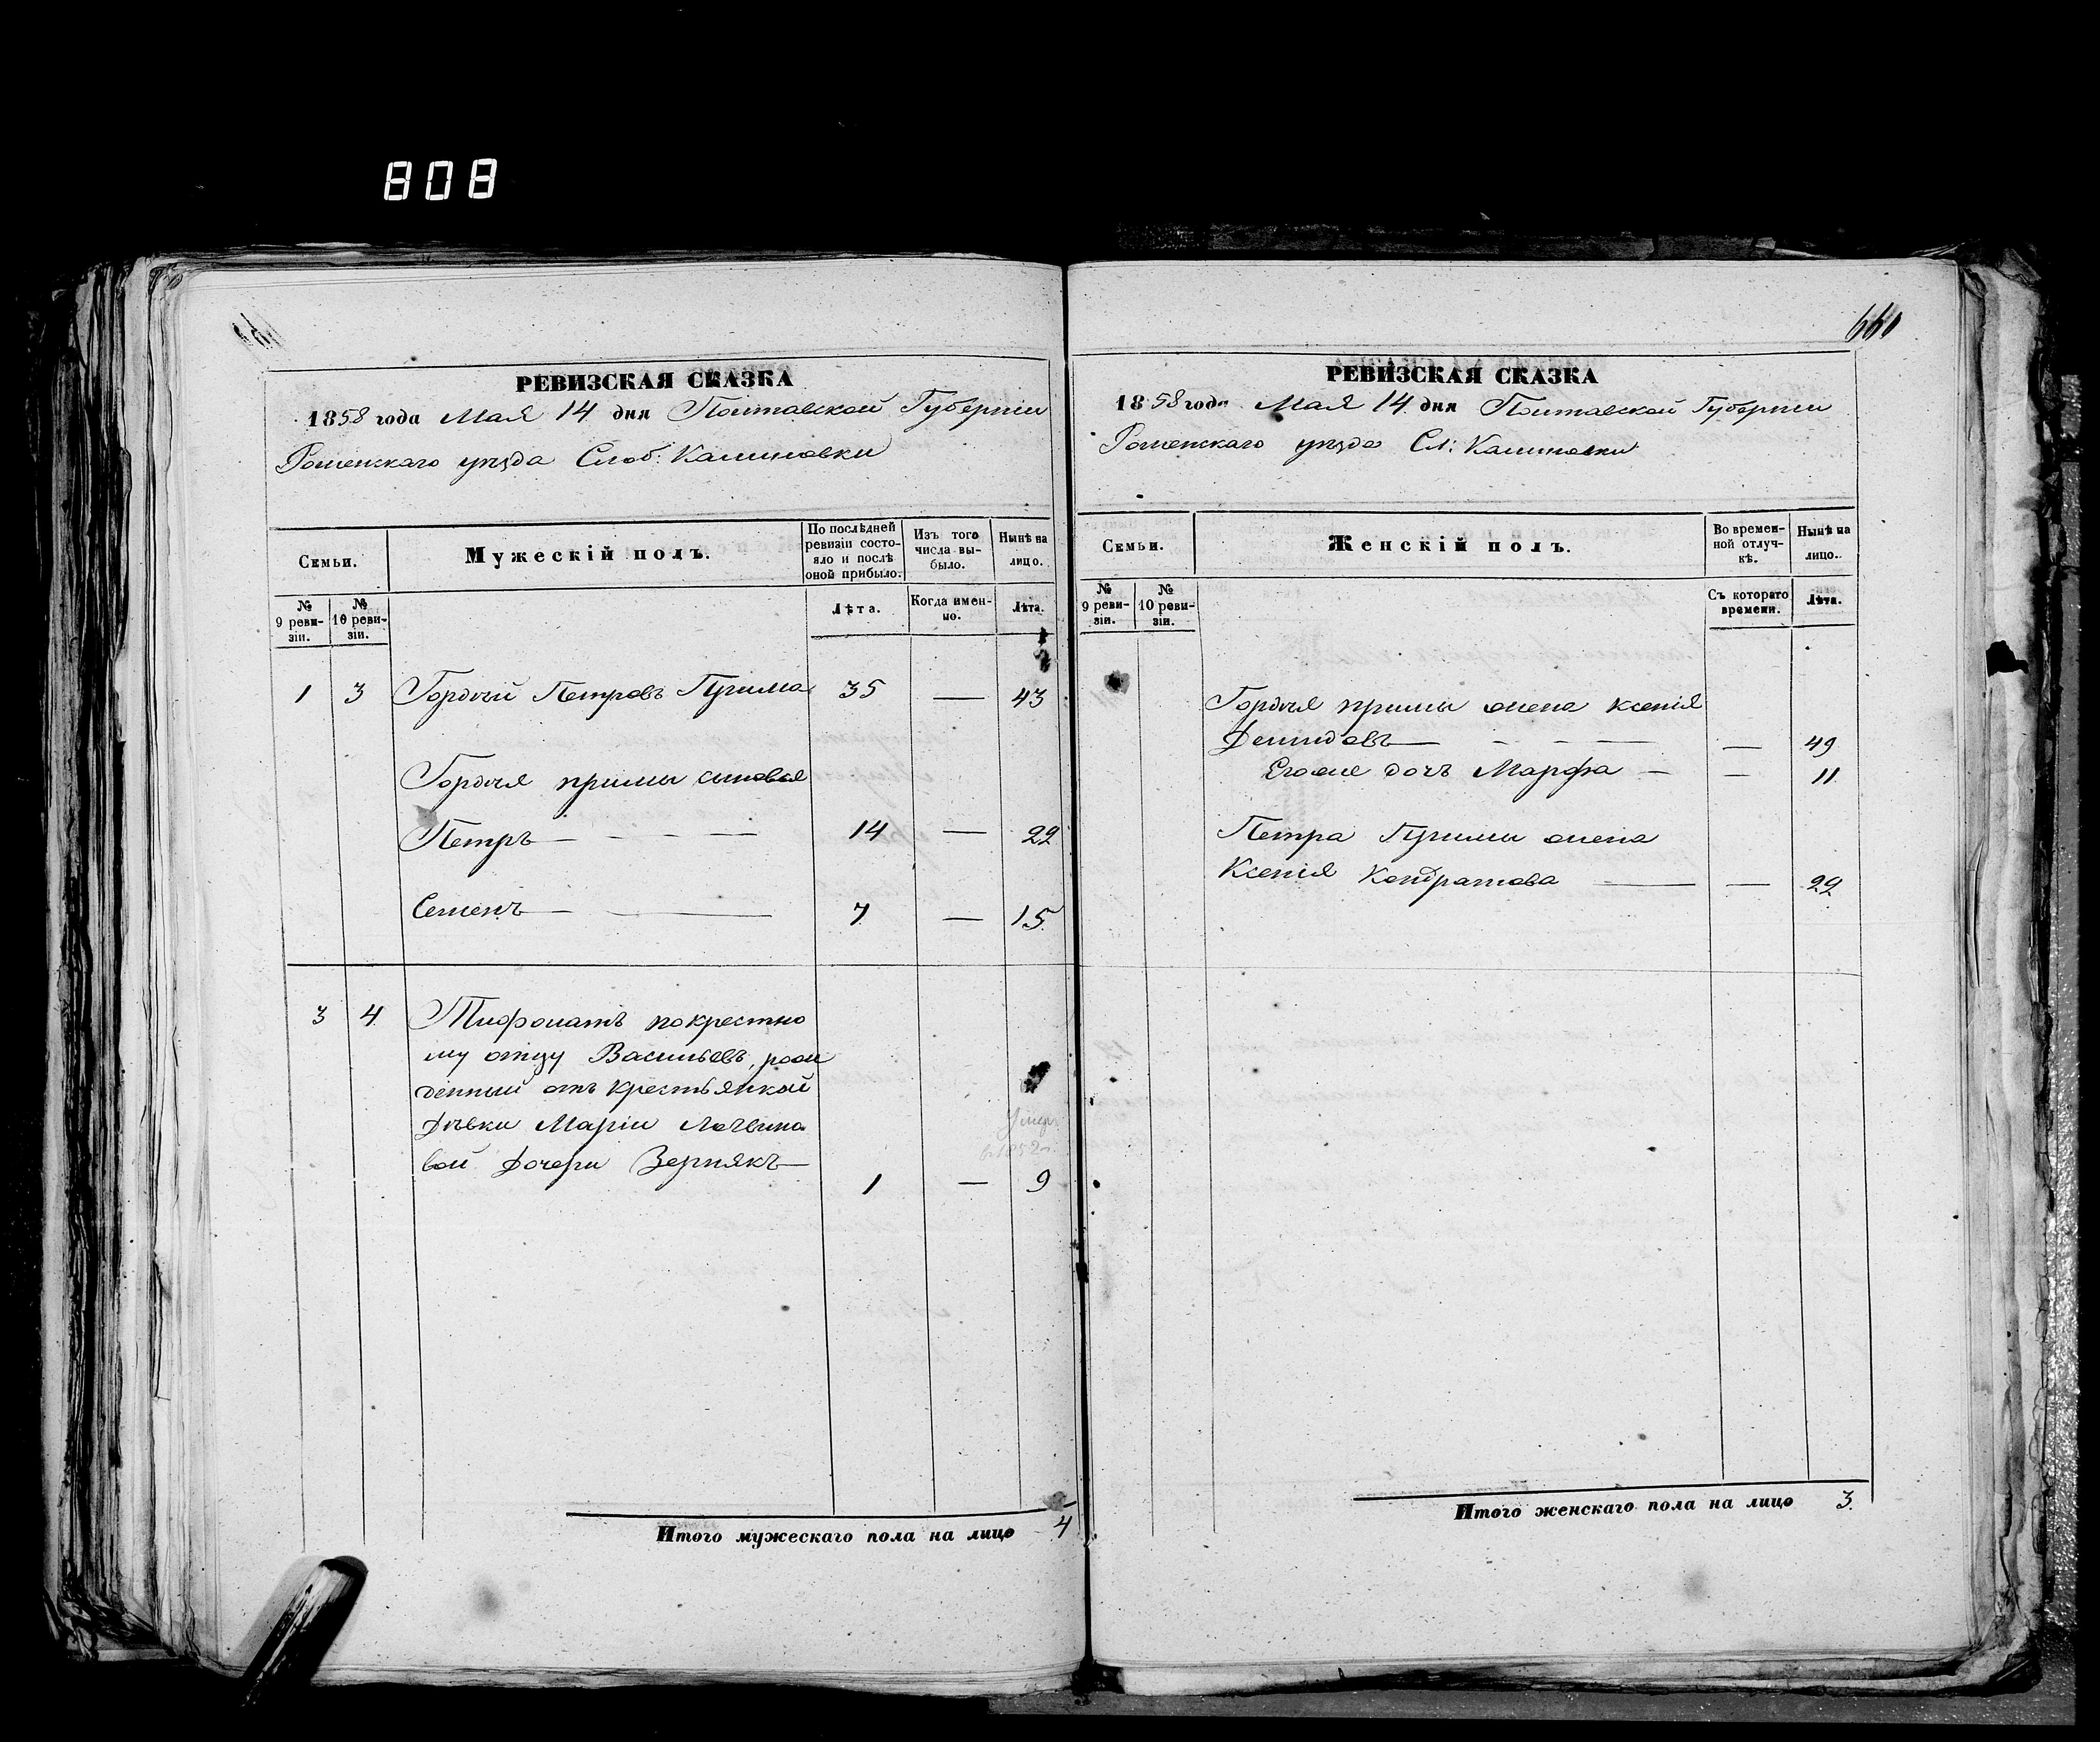 808
661
РЕВИЗСКАЯ СКАЗКА
1858 года Мая 14 дня Полтавской Губерніи
Роменскаго уѣзда Слоб: Калиновки
Семьи.
Мужескій полъ.
По послѣдней ревизіи состояло и послѣ оной прибыло.
Изъ того числа выбыло.
Нынѣ на лицо.
№ 9 ревизіи.
№ 10 ревизіи.
Лѣта.
Когда именно.
Лѣта.
1 3 Гордѣй Петровъ Прима 35 — 43
Гордѣя примы сыновья
Петръ — — — — 14 — 22
Семенъ — — 7 — 15
3 4 Тифонатъ по крестно
му отцу Васильевъ, рож
денный отъ крестьянкой
Дѣвки Маріи Логвино
вой дочери Зернякъ — 1 — 9
Умер
в 1852 г.
Итого мужескаго пола на лицо 4
РЕВИЗСКАЯ СКАЗКА
1858 года Мая 14 дня Полтавской Губерніи
Роменскаго уѣзда Сл: Калиновки
Семьи.
Женскій полъ.
Во временной отлучкѣ.
Нынѣ на лицо.
№ 9 ревизіи.
№ 10 ревизіи.
Съ котораго времени.
Лѣта.
Гордѣя примы жена Ксенія
Демидовъ — — — — — 49
Егоже дочь Марфа — — 11
Петра Примы жена
Ксенія Кондратова — — 22
Итого женскаго пола на лицо 3.